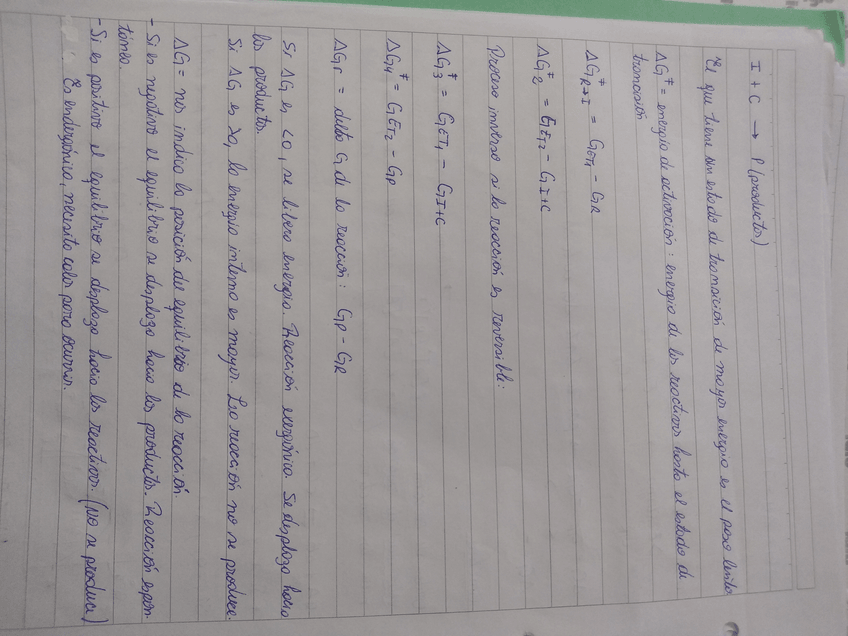 I + C → P (productos)
*El que tiene un estado de transición de mayor energía es el paso limite
ΔG‡ = energía de activación : energía de los reactivos hasta el estado de
transición
ΔG‡R→I = GET1 - GR
ΔG‡2 = GET2 - GI+C
Proceso inverso si la reacción es reversible:
ΔG‡3 = GET1 - GI+C
ΔG‡4 = GET2 - GP
ΔGr = delta G de la reacción : GP - GR
Si ΔG es <0, se libera energía. Reacción exergónica. Se desplaza hacia
los productos.
Si ΔG es >0, la energía interna es mayor. La reacción no se produce.
ΔG = nos indica la posición del equilibrio de la reacción.
- Si es negativo el equilibrio se desplaza hacia los productos. Reacción espon-
tánea.
- Si es positivo el equilibrio se desplaza hacia los reactivos. (No se produce)
Es endergónico, necesita calor para ocurrir.